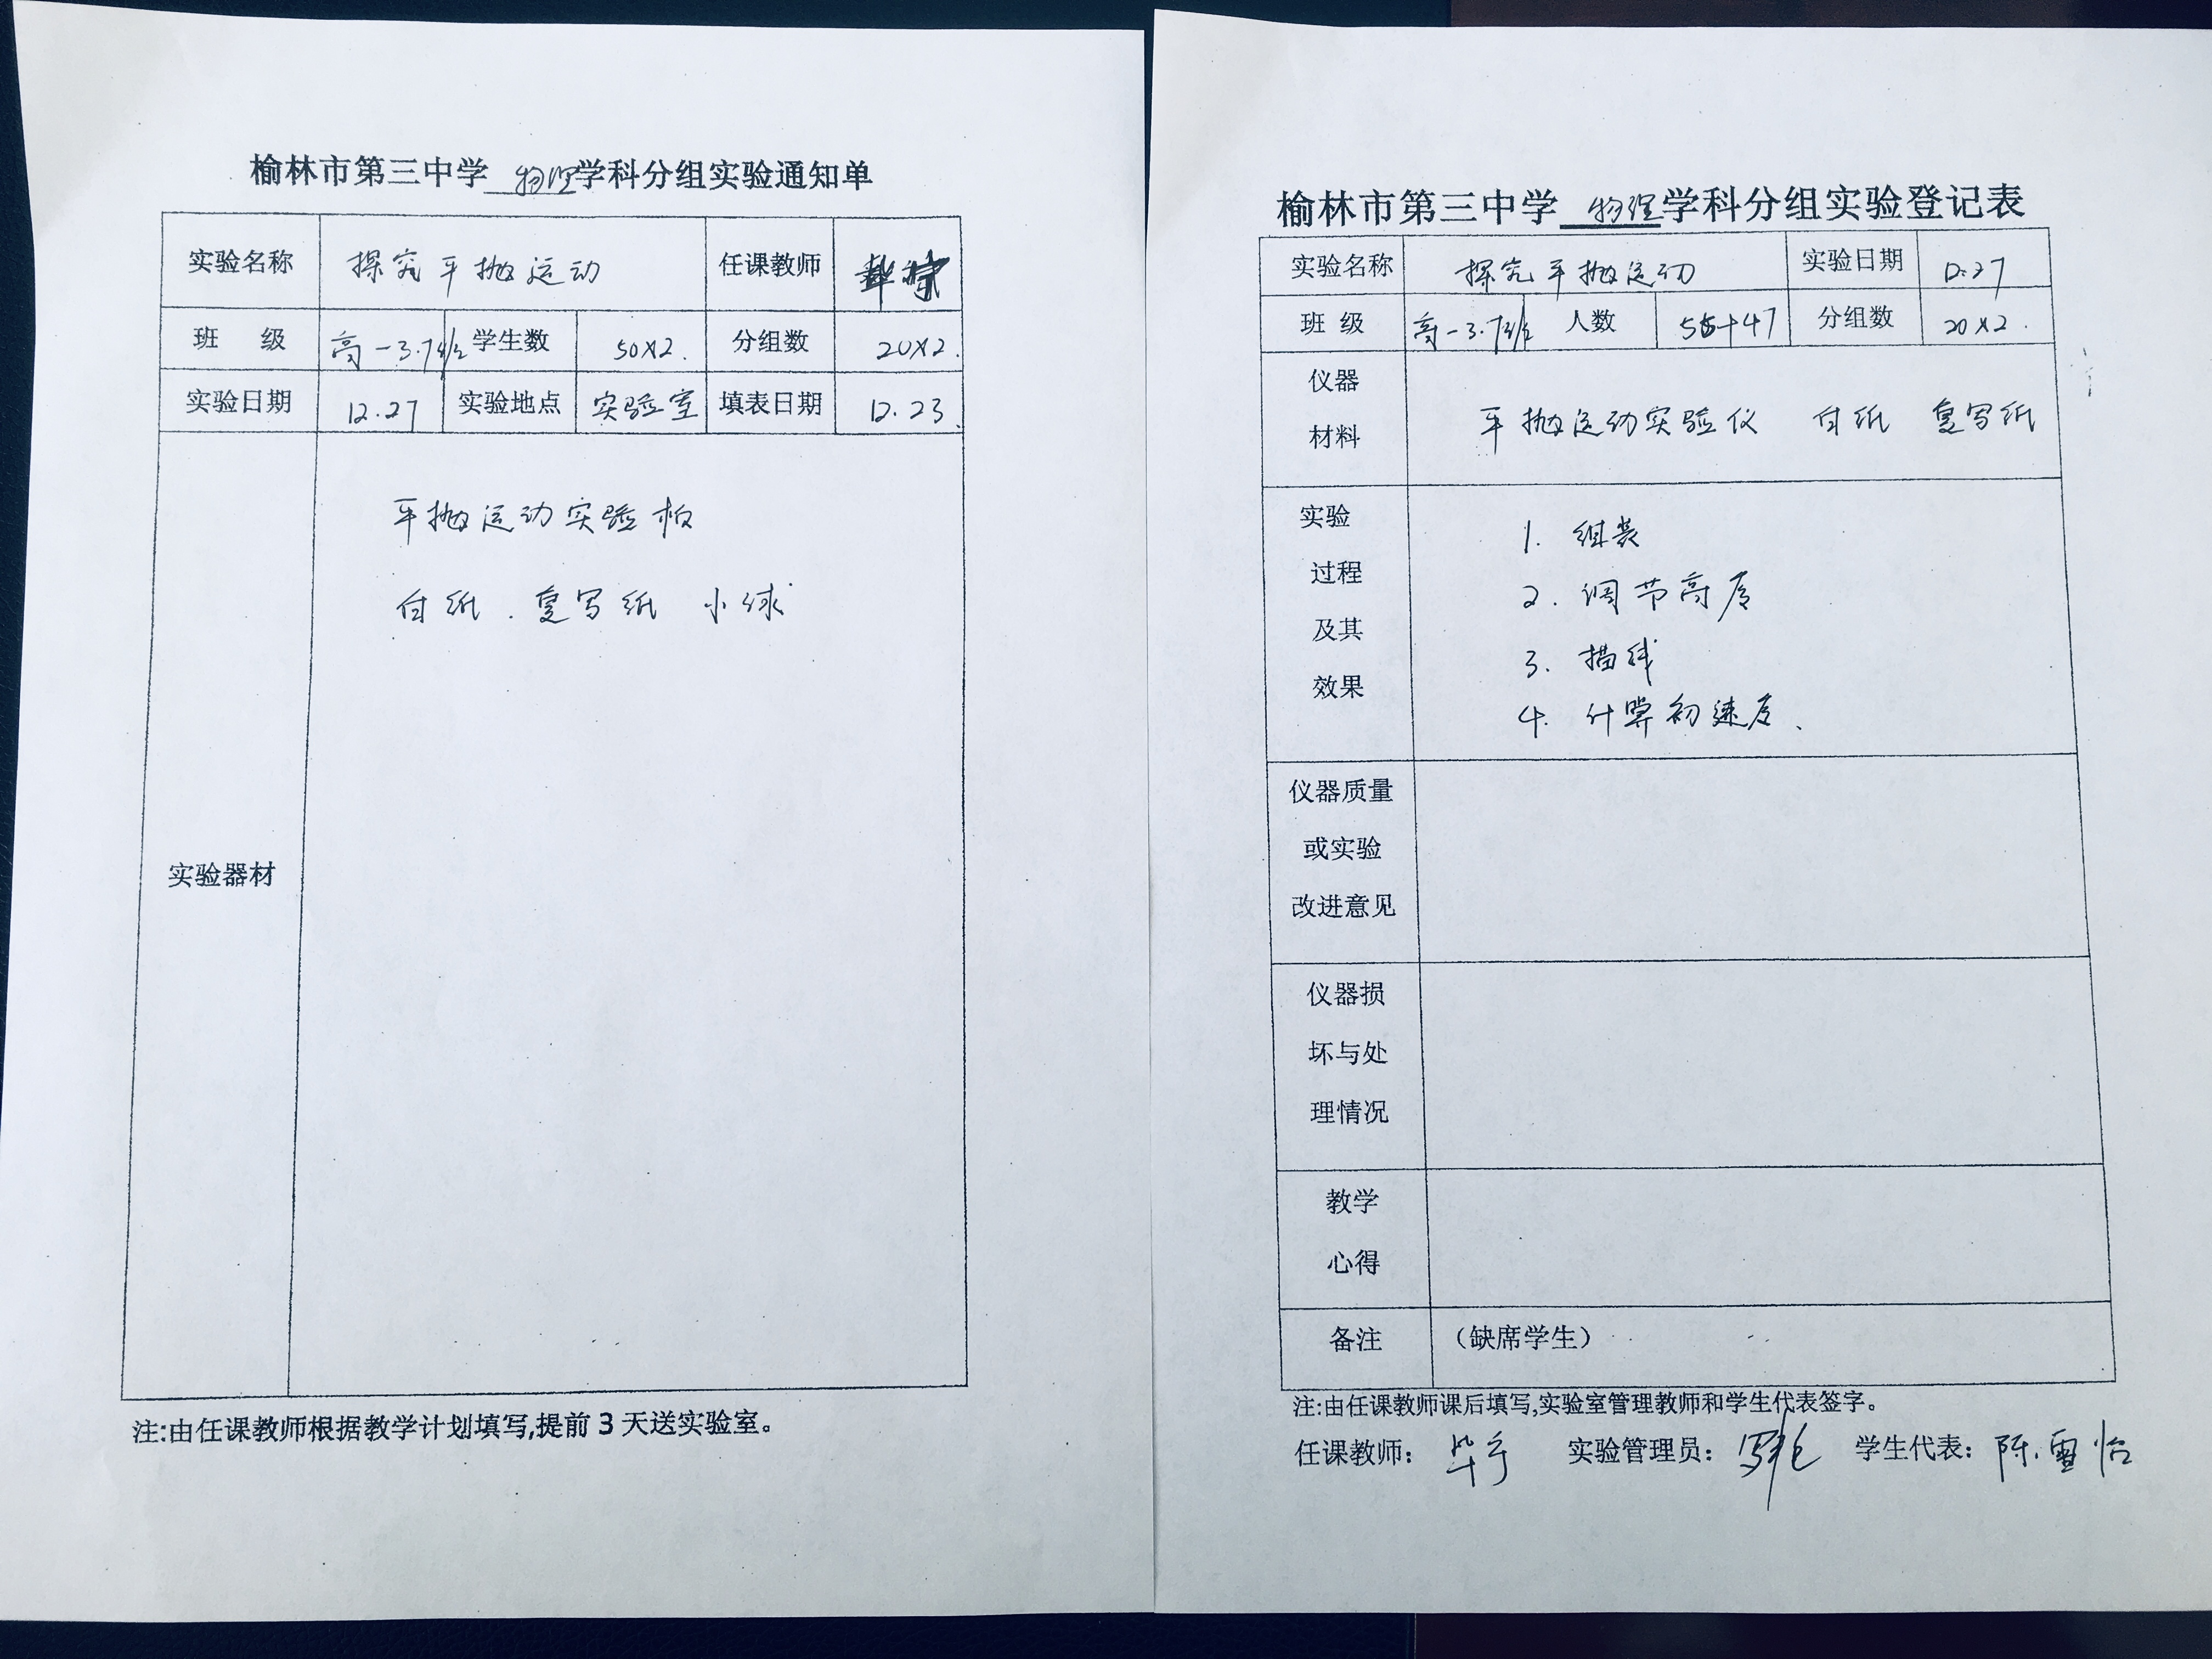 榆林市第三中学 物理学科分组实验通知单
实验名称 探究平抛运动 任课教师
班 级 高一3.7班 学生数 50X2. 分组数 20X2.
实验日期 12.27 实验地点 实验室 填表日期 12.23
实验器材
平抛运动实验板
白纸.复写纸 小球
注:由任课教师根据教学计划填写,提前3天送实验室。
榆林市第三中学 物理学科分组实验登记表
实验名称 探究平抛运动 实验日期 12.27
班 级 高一3.7班 人数 +47 分组数 20X2.
仪器
材料
平抛运动实验仪 白纸 复写纸
实验
过程
及其
效果
1. 组装
2. 调节高度
3. 描线
4. 计算初速度、
仪器质量
或实验
改进意见
仪器损
坏与处
理情况
教学
心得
备注 (缺席学生)
注:由任课教师课后填写,实验室管理教师和学生代表签字。
任课教师: 毕 实验管理员: 学生代表: 陈雪怡